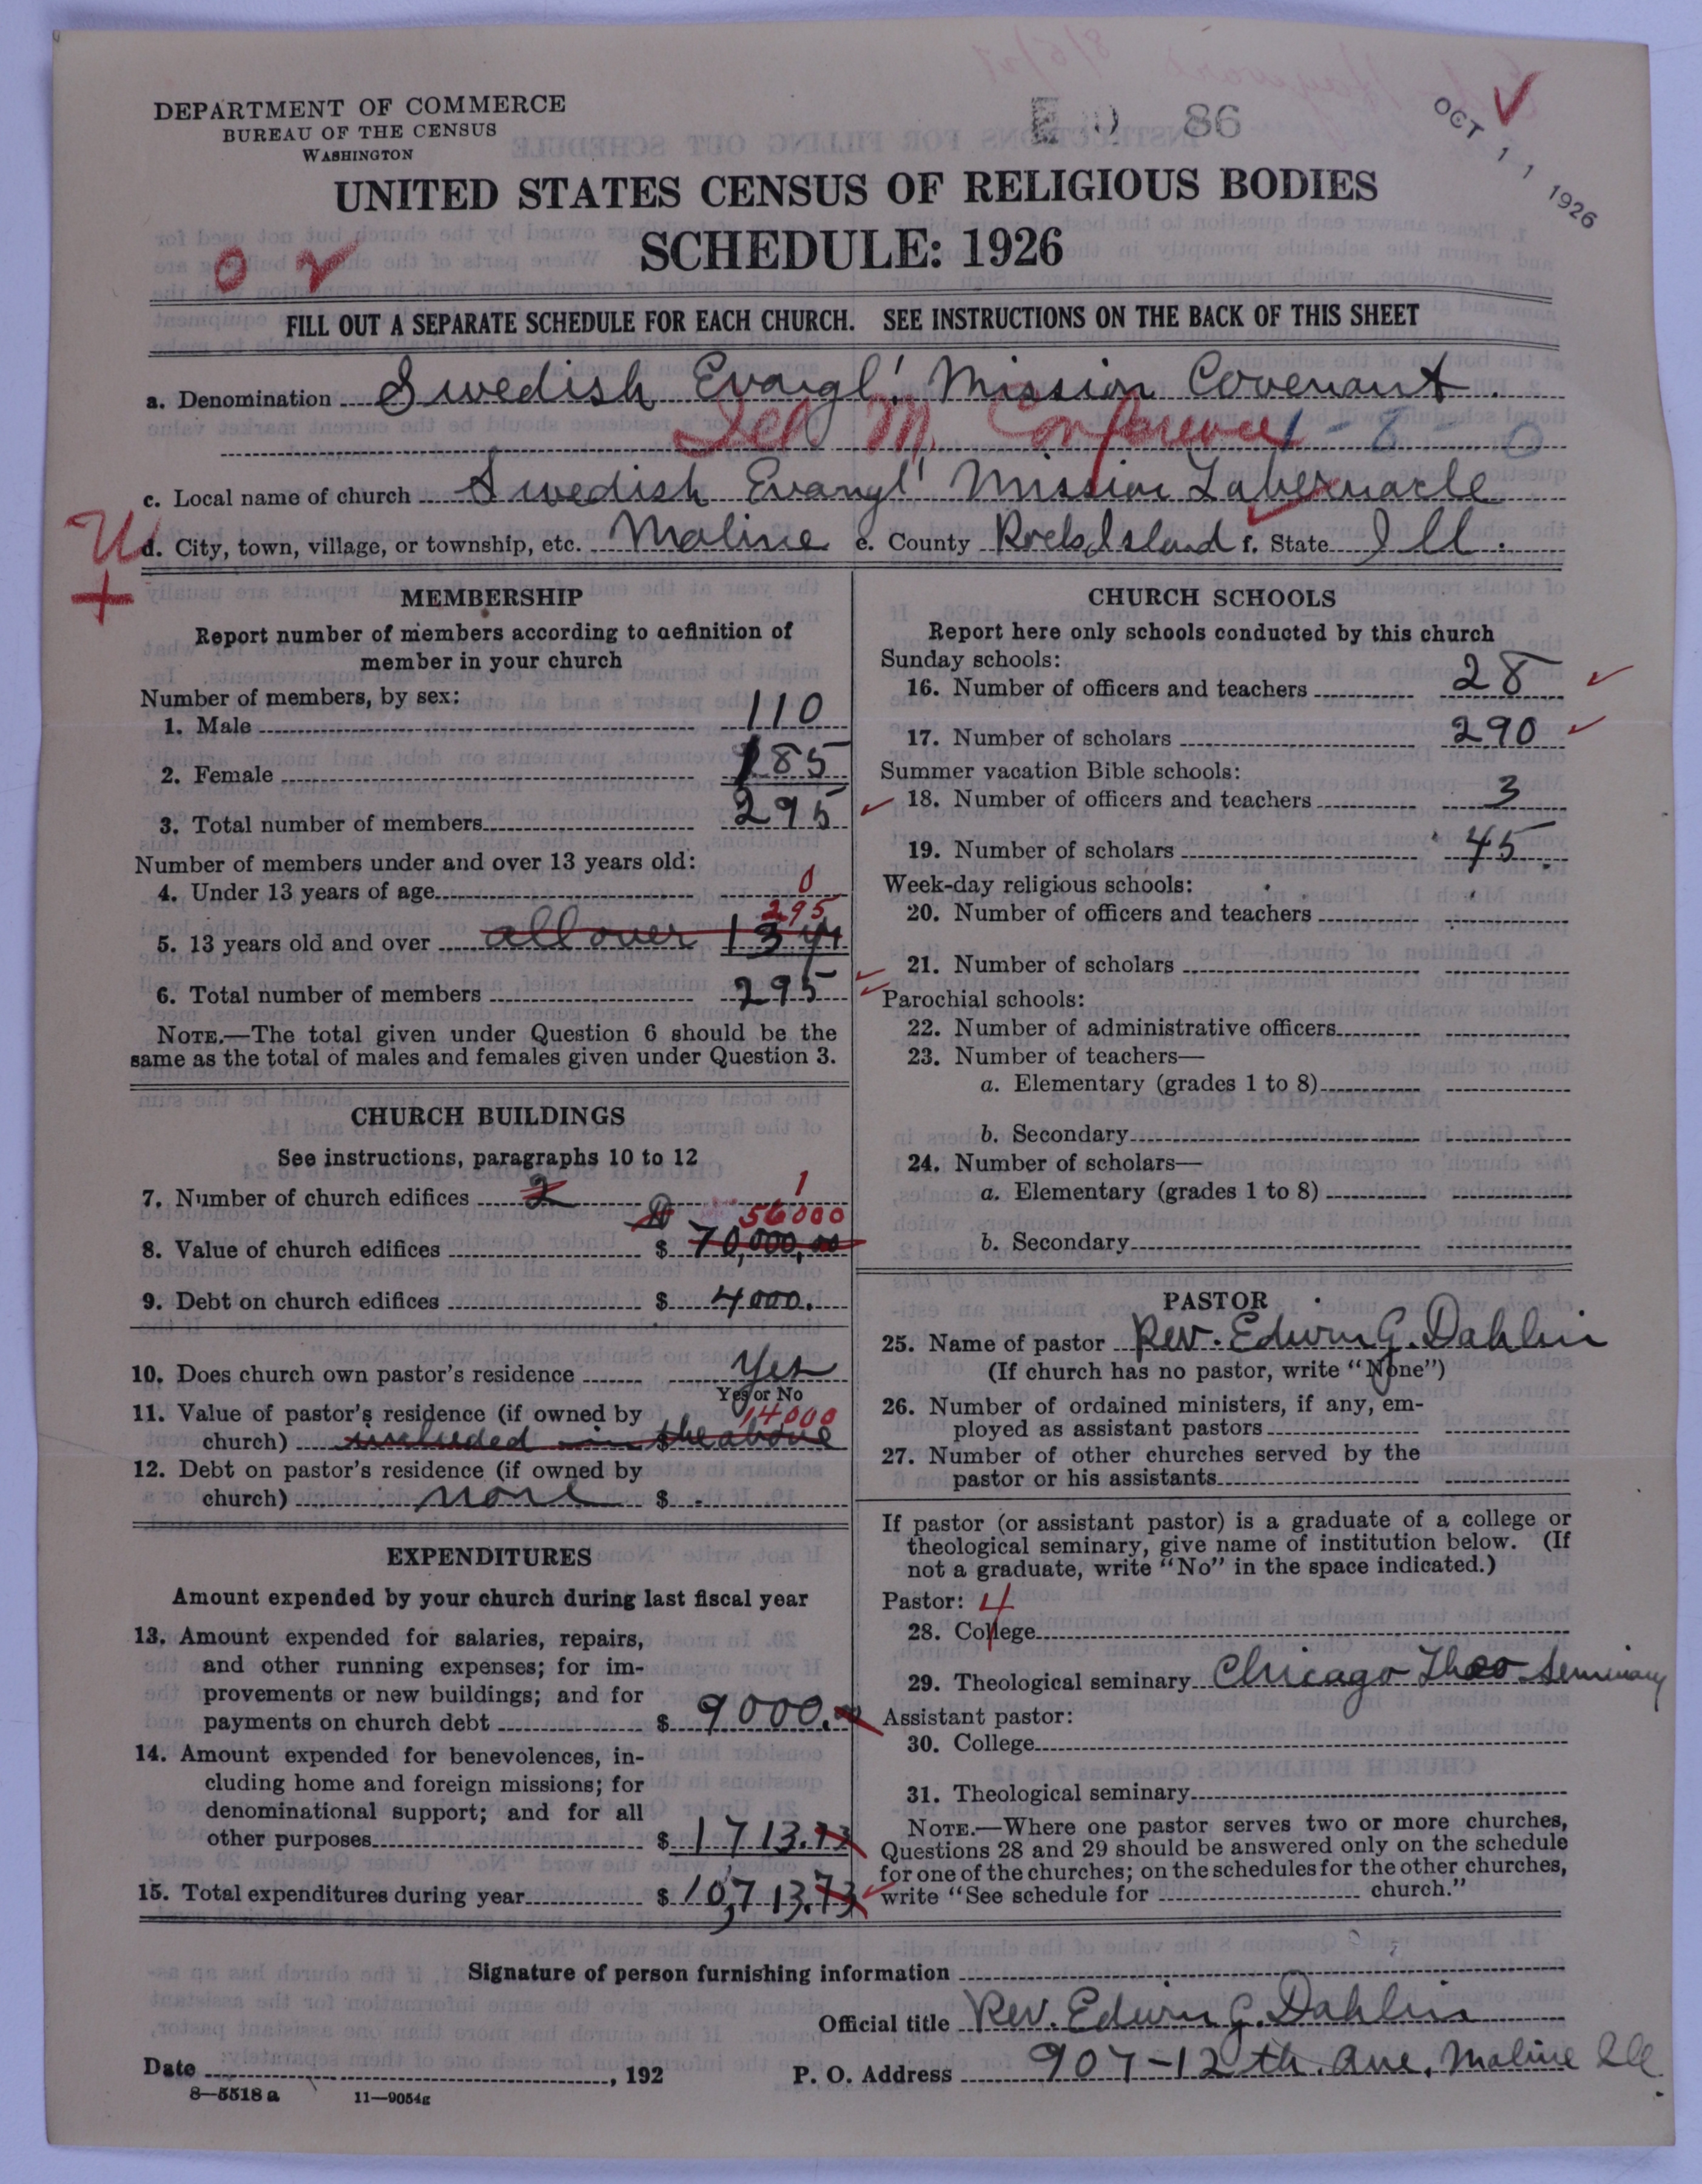 DEPARTMENT OF COMMERCE
BUREAU OF THE CENSUS
WASHINGTON
86
OCT 11 1926
UNITED STATES CENSUS OF RELIGIOUS BODIES
SCHEDULE: 1926
FILL OUT A SEPARATE SCHEDULE FOR EACH CHURCH. SEE INSTRUCTIONS ON THE BACK OF THIS SHEET
a. Denomination Swedish Evangl' Mission Covenant.
M. Conference 1-8-0
c. Local name of church Swedish Evangl' Mission Tabernacle
U d. City, town, village, or township, etc. Moline e. County Rock Island f. State Ill.
+
MEMBERSHIP
Report number of members according to definition of
member in your church
Number of members, by sex:
1. Male 110
2. Female 185
3. Total number of members 295
Number of members under and over 13 years old:
4. Under 13 years of age 0
295
5. 13 years old and over all over 13 yr
6. Total number of members 295
NOTE.—The total given under Question 6 should be the
same as the total of males and females given under Question 3.
CHURCH BUILDINGS
See instructions, paragraphs 10 to 12
7. Number of church edifices 2 1
56000
8. Value of church edifices $ 70,000,00
9. Debt on church edifices $ 4000.
10. Does church own pastor's residence Yes
Yes or No
11. Value of pastor's residence (if owned by 14000
church) included in $ the above
12. Debt on pastor's residence (if owned by
church) none $
EXPENDITURES
Amount expended by your church during last fiscal year
13. Amount expended for salaries, repairs,
and other running expenses; for im-
provements or new buildings; and for
payments on church debt $ 9000.00
14. Amount expended for benevolences, in-
cluding home and foreign missions; for
denominational support; and for all
other purposes $ 1713.73
15. Total expenditures during year $ 10,713.73
CHURCH SCHOOLS
Report here only schools conducted by this church
Sunday schools:
16. Number of officers and teachers 28
17. Number of scholars 290
Summer vacation Bible schools:
18. Number of officers and teachers 3
19. Number of scholars 45
Week-day religious schools:
20. Number of officers and teachers
21. Number of scholars
Parochial schools:
22. Number of administrative officers
23. Number of teachers—
a. Elementary (grades 1 to 8)
b. Secondary
24. Number of scholars—
a. Elementary (grades 1 to 8)
b. Secondary
PASTOR
25. Name of pastor Rev. Edwin G. Dahlin
(If church has no pastor, write "None")
26. Number of ordained ministers, if any, em-
ployed as assistant pastors
27. Number of other churches served by the
pastor or his assistants
If pastor (or assistant pastor) is a graduate of a college or
theological seminary, give name of institution below. (If
not a graduate, write "No" in the space indicated.)
Pastor: 4
28. College
29. Theological seminary Chicago Theo Seminary
Assistant pastor:
30. College
31. Theological seminary
NOTE.—Where one pastor serves two or more churches,
Questions 28 and 29 should be answered only on the schedule
for one of the churches; on the schedules for the other churches,
write "See schedule for church."
Signature of person furnishing information
Official title Rev. Edwin G. Dahlin
Date , 192
P. O. Address 907-12th. Ave. Moline Ill.
8-5518 a 11-9054g